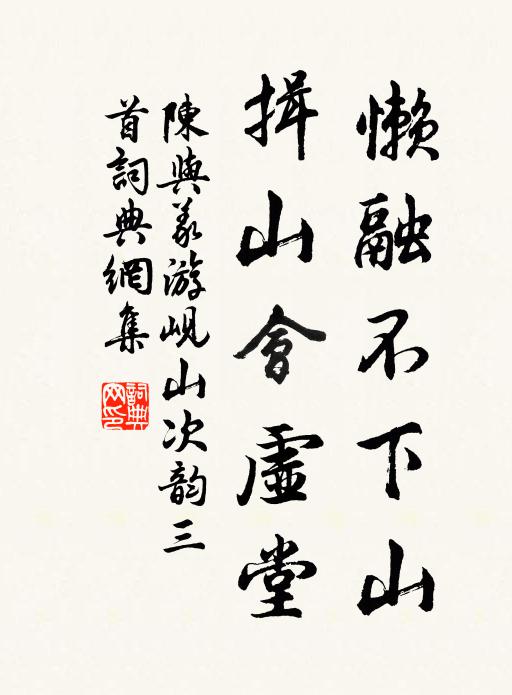 懶融不下山
揖山會虛堂
陳與義游峴山次韵三
首詞典網集
詞典網印